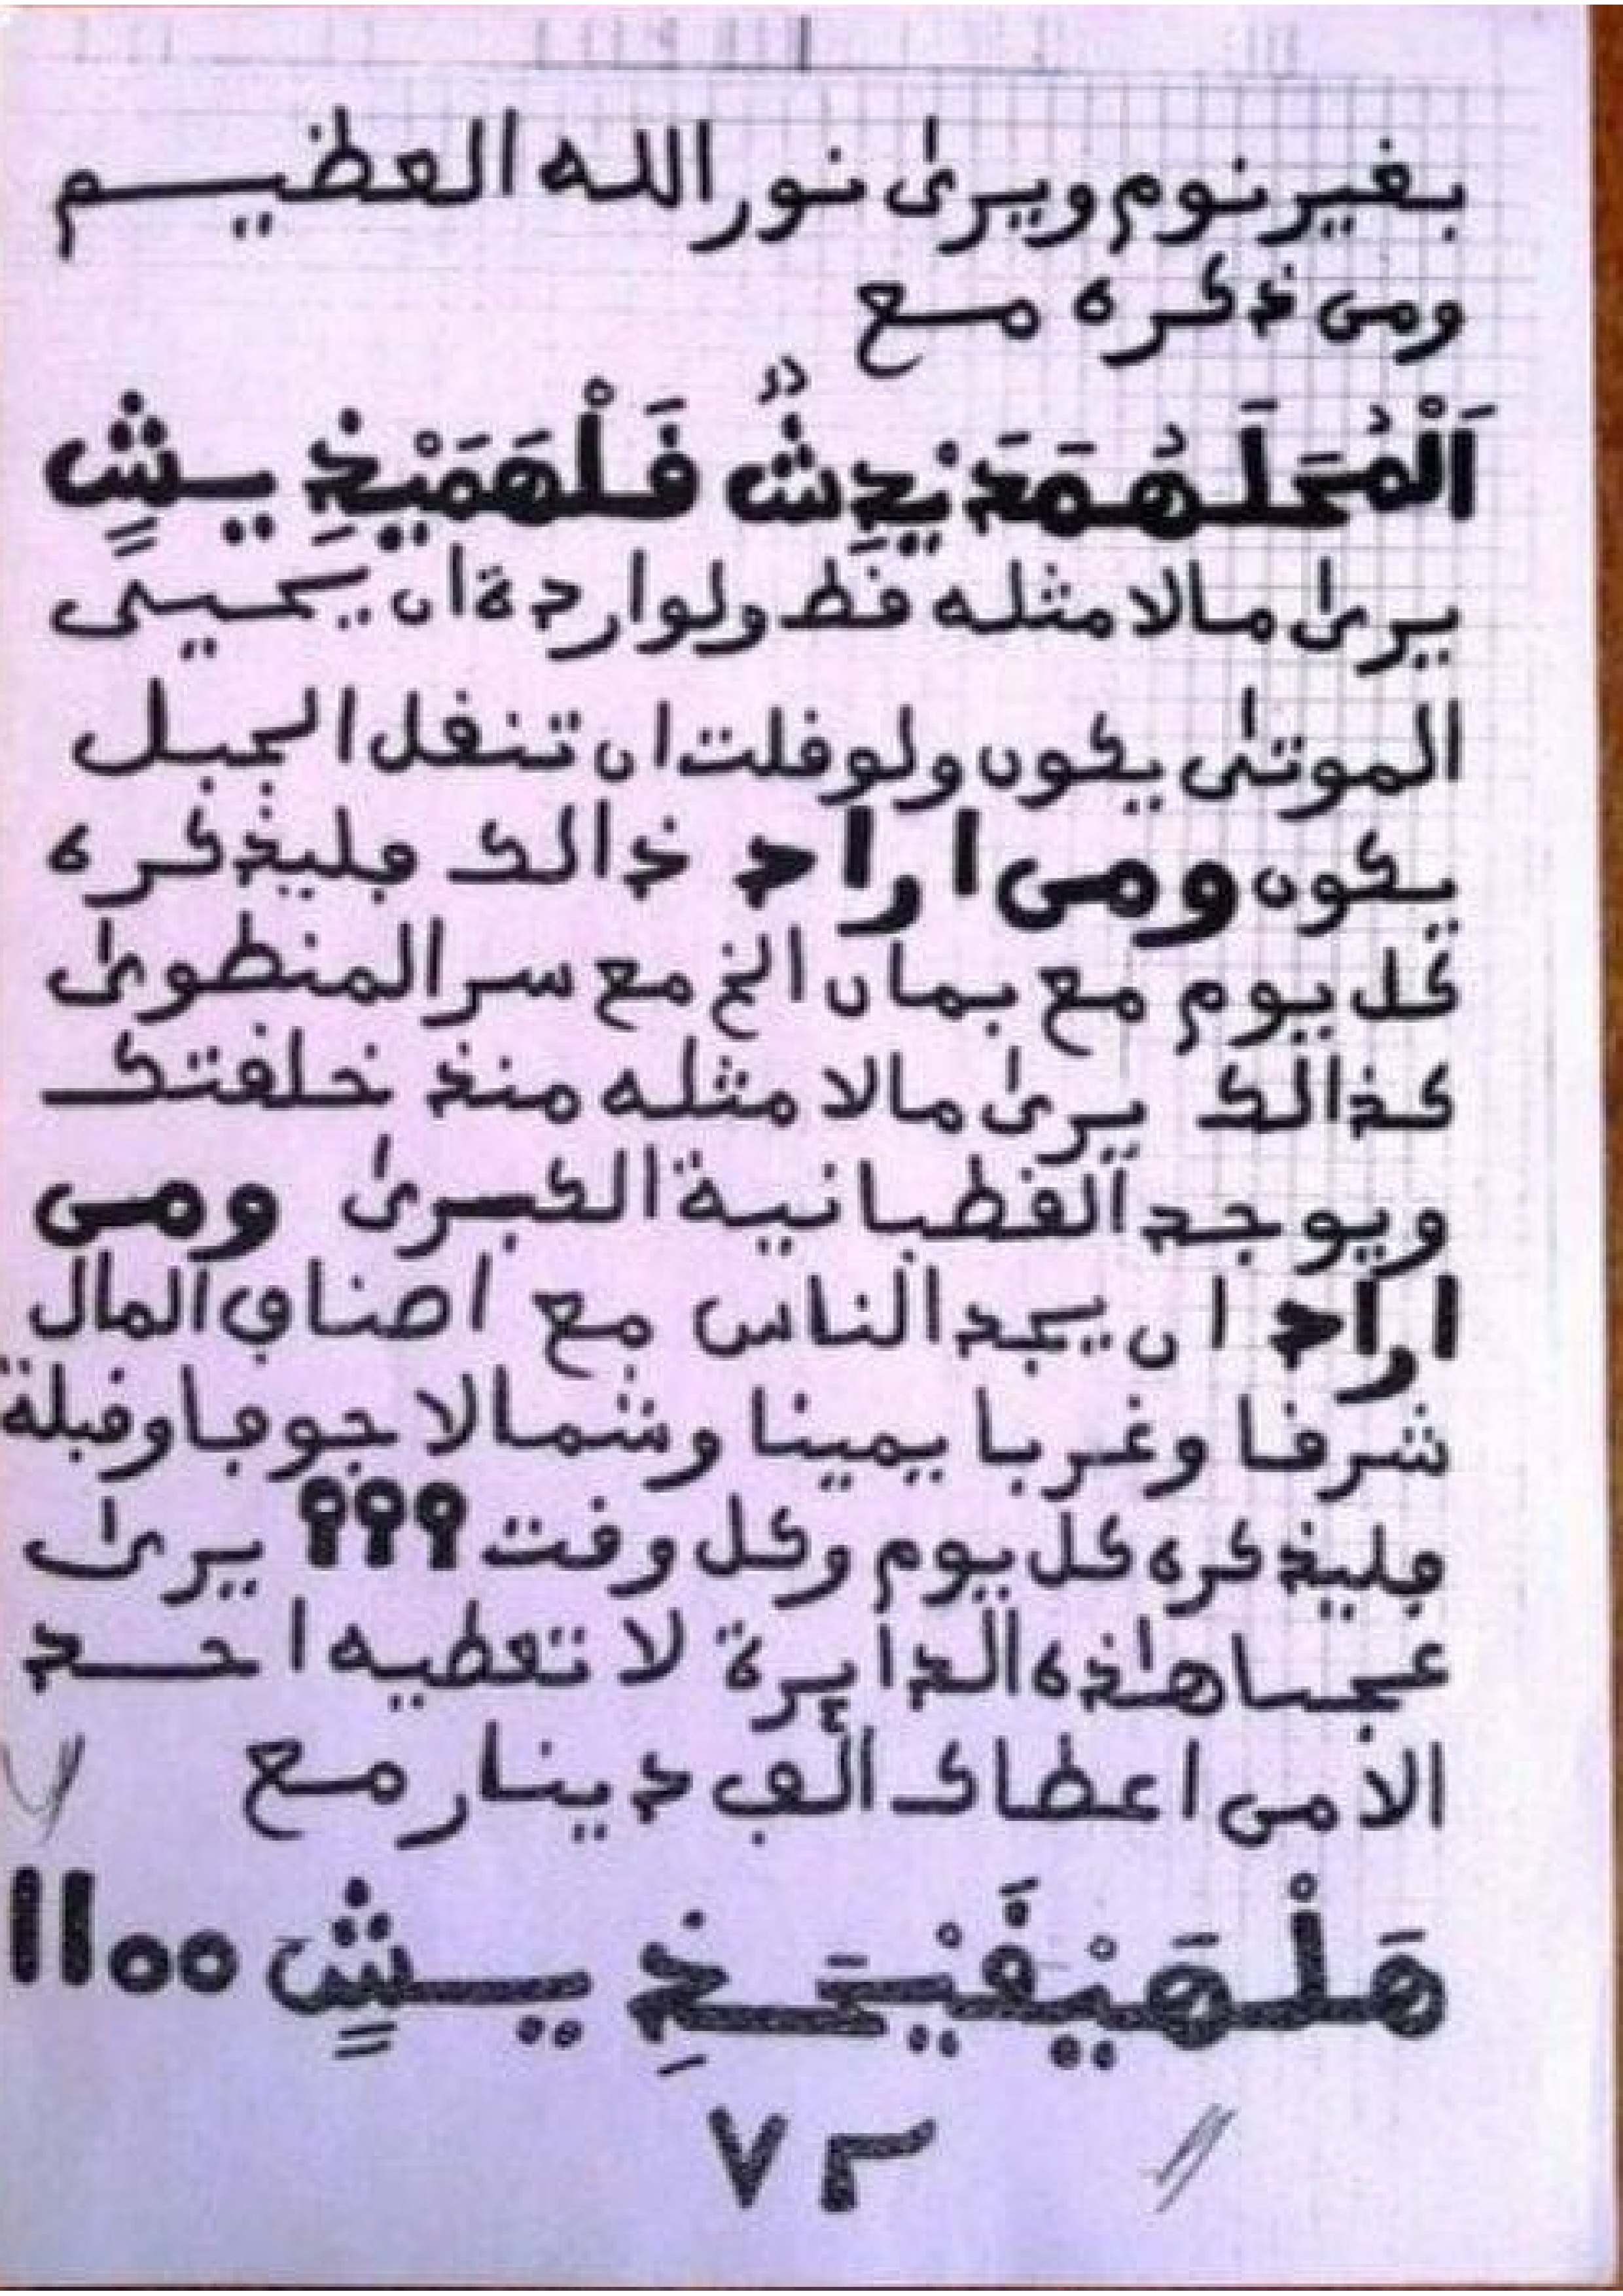 بغير نوم ويرىٰ نور الله العظيم
ومن ذكره مع
اَلْمُحَلَهُمَدَيْدِشُ فَلْهَمَيْخِيشٍ
يرىٰ مالا مثله فط ولو اردة ان يحيى
الموتىٰ يكون ولو فلت ان تنفل الجبل
يكون ومن اراد ذالك فليذكره
كل يوم مع بمان الخ مع سر المنطوىٰ
كذالك يرىٰ مالا مثله منذ خلفتك
ويوجد الفطبانية الكبرىٰ ومن
اراد ان يجد الناس مع اصناف المال
شرفا وغربا يمينا وشمالا جوفا وفبلة
فليذكره كل يوم وكل وفت ٩٩٩ يرىٰ
عجبا هٰذه الدايرة لا تعطيه احد
الا من اعطاك ألف دينار مع
هَلْهَيْفَيْحَخِيشٍ ١١٥٥
٧٣